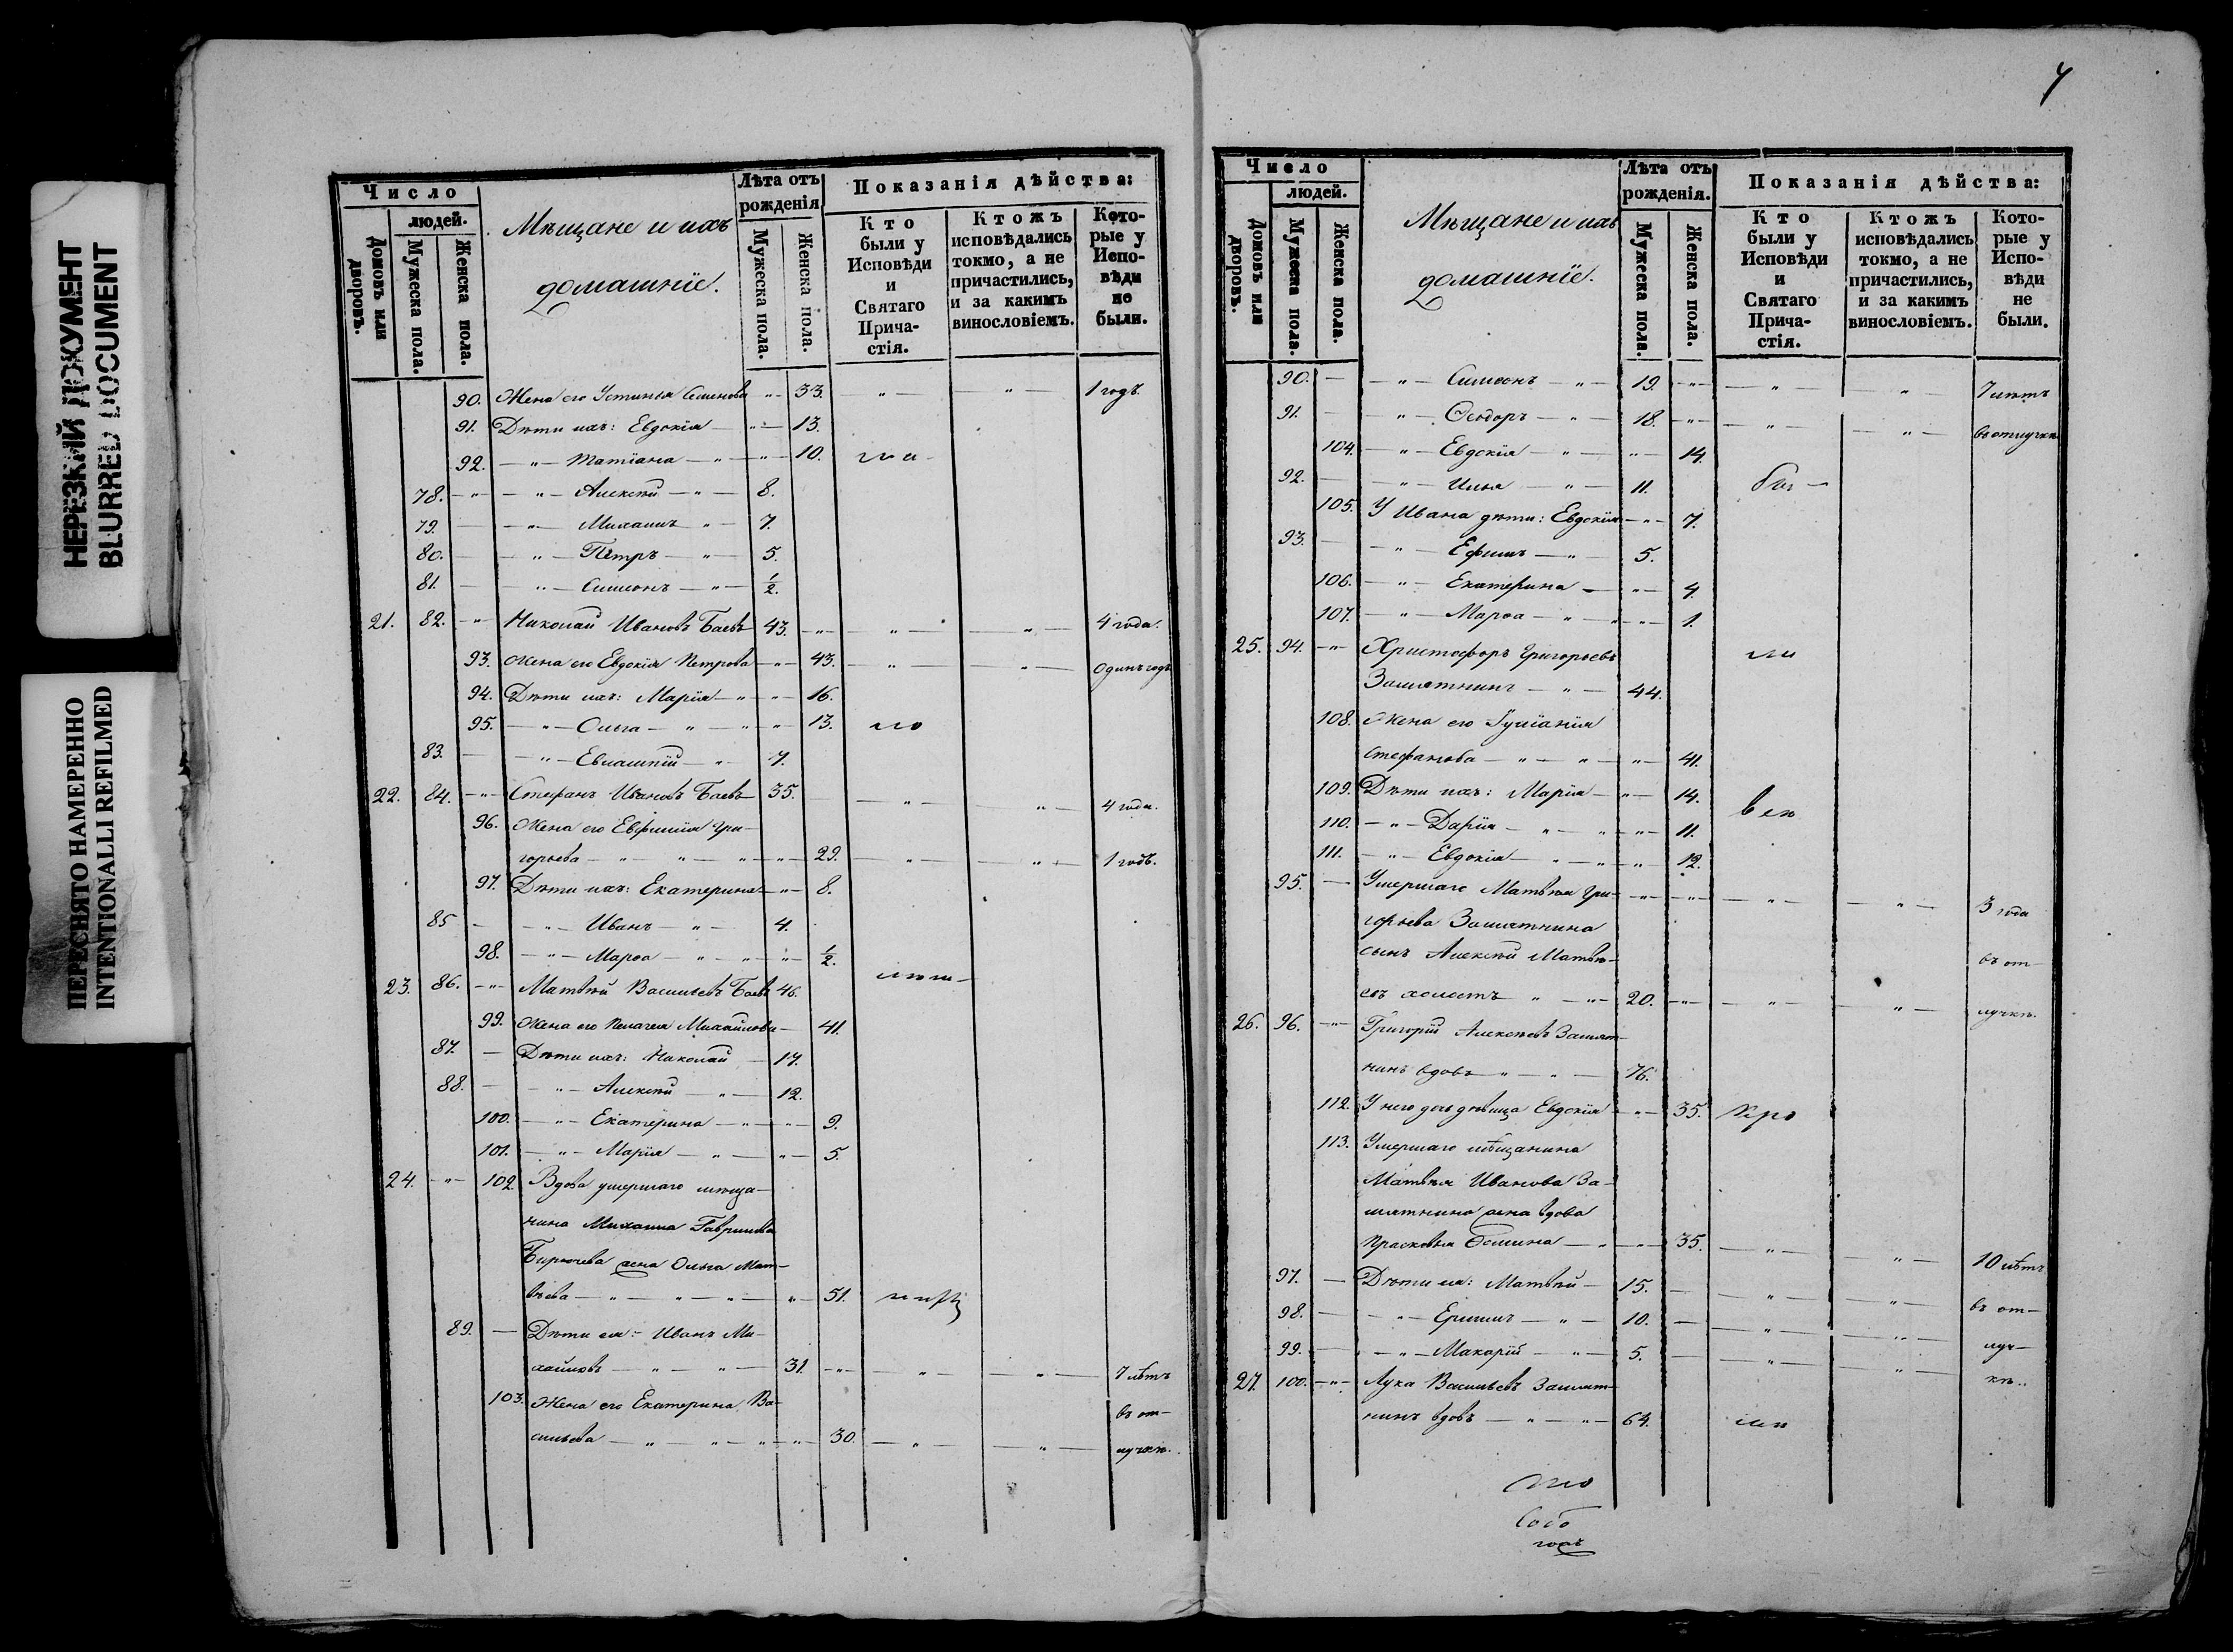 НЕРЕЗКИЙ ДОКУМЕНТ
BLURRED DOCUMENT
ПЕРЕСНЯТО НАМЕРЕННО
INTENTIONALLI REFILMED
Число
людей.
Домовъ или дворовъ.
Мужеска пола.
Женска пола.
Мѣщане и ихъ
домашнiе.
Лѣта отъ
рожденiя
Мужеска пола.
Женска пола.
Показанiя дѣйства:
Кто
были у
Исповѣди
и
Святаго
Прича-
стiя.
Ктожъ
исповѣдались
токмо, а не
причастились,
и за какимъ
винословiемъ.
Кото-
рые у
Испо-
вѣди
не
были.
90. Жена его Устинья Семенова -"- 33. -"- -"- 1 годъ.
91. Дѣти ихъ: Евдокiя -"- 13.
92. -"- Татiана -"- -"- 10.
78. -"- -"- Алексѣй -"- 8.
79. -"- Михаилъ -"- 7.
80. -"- Петръ -"- 5.
81. -"- Симеонъ -"- 1/2.
21. 82. -"- Николай Ивановъ Баевъ 43. -"- -"- -"- 4 года.
93. Жена его Евдокiя Петрова -"- 43. -"- -"- Одинъ годъ
94. Дѣти ихъ: Марiя -"- -"- 16.
95. -"- Ольга -"- -"- 13.
83. -"- Евлампiй -"- 7.
22. 84. -"- Стефанъ Ивановъ Баевъ 35. -"- -"- 4 года.
96. Жена его Евфимiя Гри-
горьева -"- -"- -"- 29. -"- -"- 1 годъ.
97. Дѣти ихъ: Екатерина -"- 8.
85 -"- Иванъ -"- 4.
98. -"- Марѳа -"- -"- 1/2.
23. 86. -"- Матвѣй Васильевъ Баевъ 46.
99. Жена его Пелагея Михайлова - 41.
87. Дѣти ихъ: Николай - 17.
88. -"- Алексѣй -"- 12.
100. -"- Екатерина -"- -"- 9.
101. -"- Марiя -"- -"- 5.
24. -"- 102. Вдова умершаго мѣща-
нина Михаила Гаврилова
Бирючева жена Ольга Мат-
вѣева -"- -"- -"- 51.
89. Дѣти ея: Иванъ Ми-
хайловъ -"- -"- 31. -"- -"- -"- 7 лѣтъ
103. Жена его Екатерина Ва- въ от-
сильева -"- -"- -"- 30. -"- -"- лучкѣ.
Число
людей.
Домовъ или дворовъ.
Мужеска пола.
Женска пола.
Мѣщане и ихъ
домашнiе.
Лѣта отъ
рожденiя.
Мужеска пола.
Женска пола.
Показанiя дѣйства:
Кто
были у
Исповѣди
и
Святаго
Прича-
стiя.
Ктожъ
исповѣдались
токмо, а не
причастились,
и за какимъ
винословiемъ.
Кото-
рые у
Испо-
вѣди
не
были.
90. -"- Симеонъ -"- 19. -"- -"- -"- 7 лѣтъ
91. -"- Ѳеодоръ -"- 18. -"- -"- -"- въ отлучкѣ
104. -"- Евдокiя -"- -"- 14.
92. -"- Илья -"- 11.
105. У Ивана дѣти: Евдокiя -"- 7.
93. -"- Ефимъ -"- 5.
106. -"- Екатерина -"- 4.
107. -"- Марѳа -"- -"- 1.
25. 94. -"- Христофоръ Григорьевъ
Замятнинъ -"- 44.
108. Жена его Iулiанiя
Стефанова -"- -"- -"- 41.
109. Дѣти ихъ: Марiя -"- 14.
110. -"- Дарiя -"- -"- 11.
111. -"- Евдокiя -"- -"- 12.
95. Умершаго Матвѣя Гри- -"- -"- -"- -"- 3 года
горьева Замятнина
сынъ Алексѣй Матвѣ- въ от-
евъ холостъ -"- 20. -"- -"- -"- лучкѣ.
26. 96. -"- Григорiй Алексѣевъ Замят-
нинъ вдовъ -"- -"- 76.
112. У него дочь дѣвица Евдокiя -"- 35.
113. Умершаго мѣщанина
Матвѣя Иванова За-
мятнина жена вдова
Прасковья Ѳомина -"- -"- 35. -"- -"- 10 лѣтъ
97. Дѣти ея: Матвѣй - 15. -"- -"- въ от-
98. -"- Ермилъ -"- 10. -"- -"- луч-
99. -"- Макарiй -"- 5. -"- -"- кѣ.
27. 100. -"- Лука Васильевъ Замят-
нинъ вдовъ -"- -"- 64.